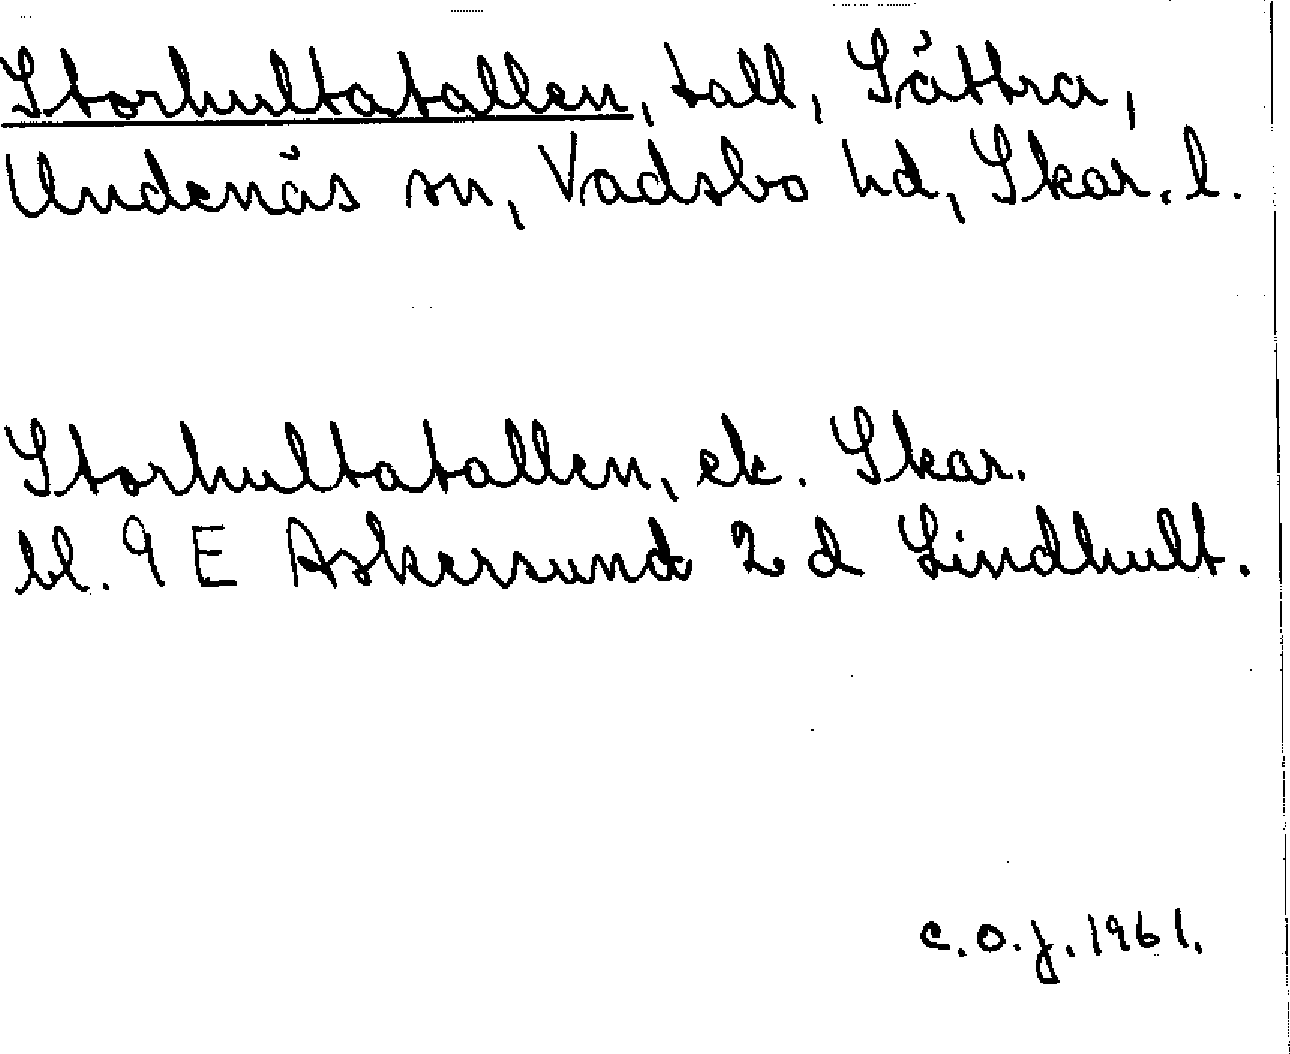 Storhultatallen, tall, Sättra,
Undenäs sn, Vadsbo hd, Skar. l.
Storhultatallen, ek. Skar.
bl. 9 E Askersund 2 d Lindhult.
c.o.j. 1961.